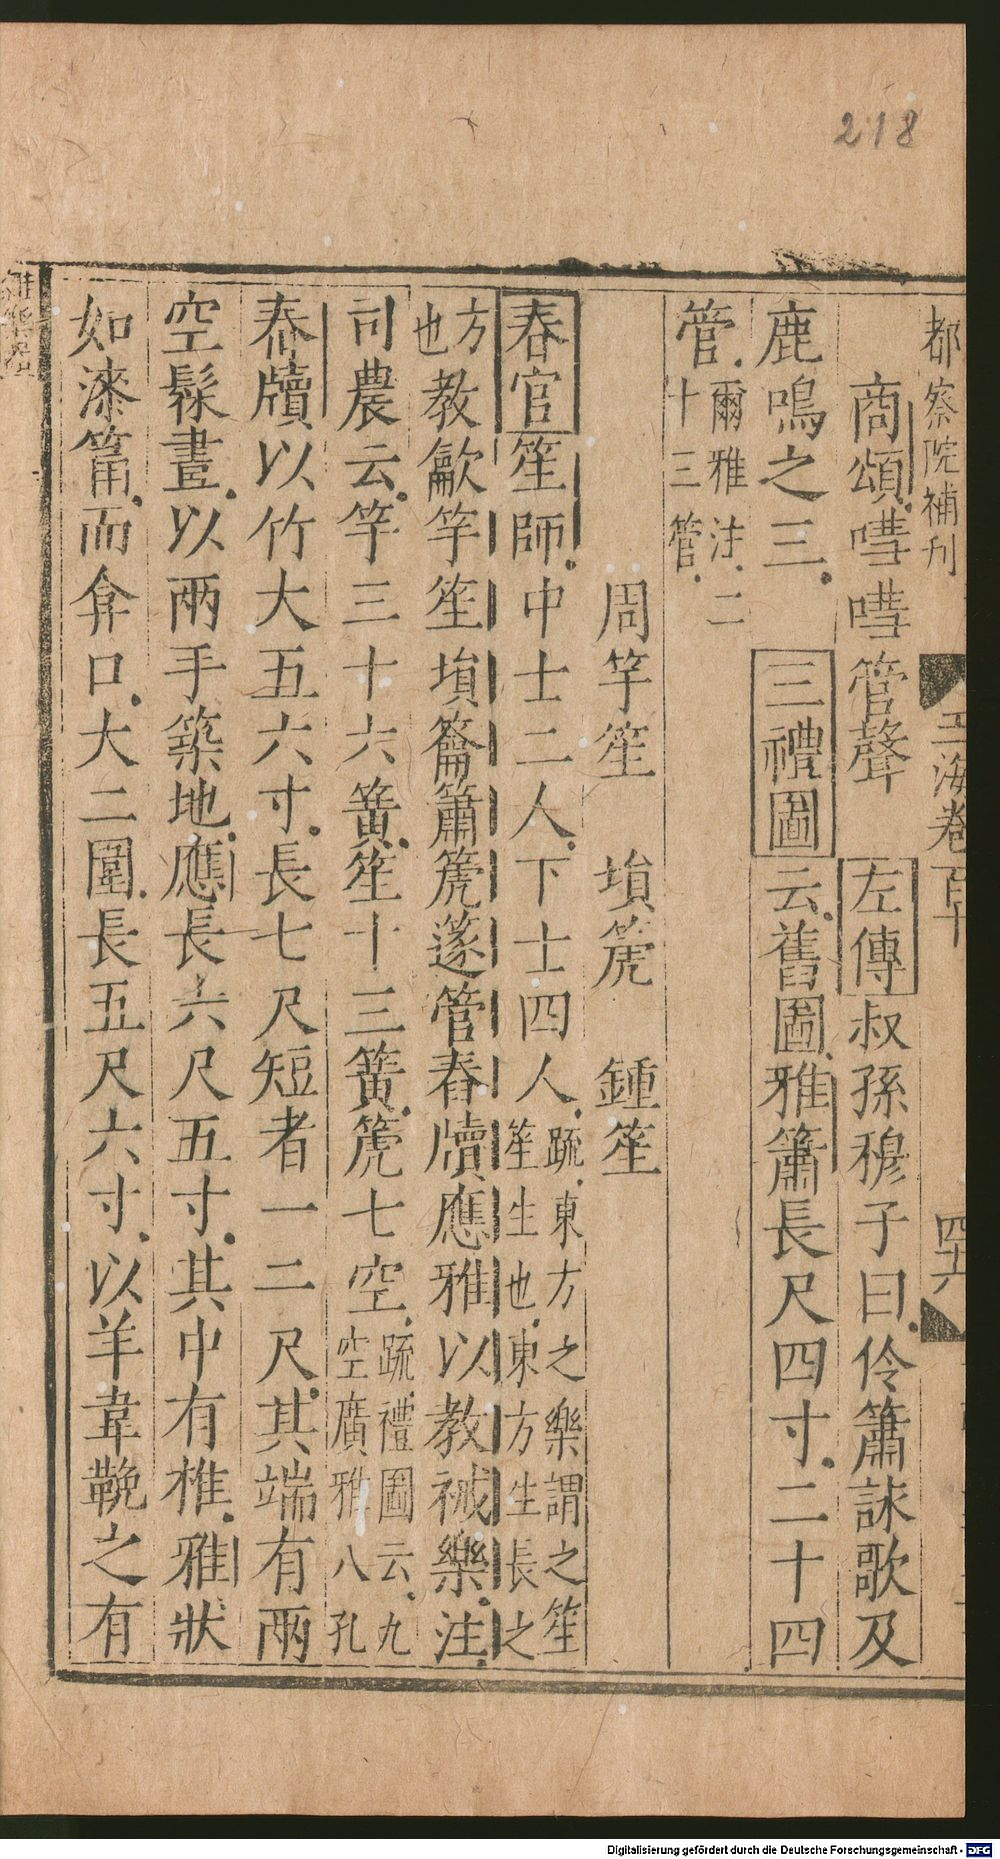 218
都察院補刋
玉海卷百十
四六
商頌嘒嘒管聲左傳叔孫穆子曰伶簫詠歌及
鹿鳴之三三禮圖云舊圖雅簫長尺四寸二十四
管爾雅注二十三管
周竽笙 塤箎 鍾笙
春官笙師中士二人下士四人疏東方之樂謂之笙笙生也東方生長之
方也教龡竽笙塤籥簫箎篴管舂牘應雅以教祴樂注
司農云竽三十六簧笙十三簧箎七空疏禮圖云九空廣雅八孔
舂牘以竹大五六寸長七尺短者一二尺其端有兩
空髹畫以兩手築地應長六尺五寸其中有椎雅狀
如漆筩而弇口大二圍長五尺六寸以羊韋鞔之有
Digitalisierung gefördert durch die Deutsche Forschungsgemeinschaft - DFG